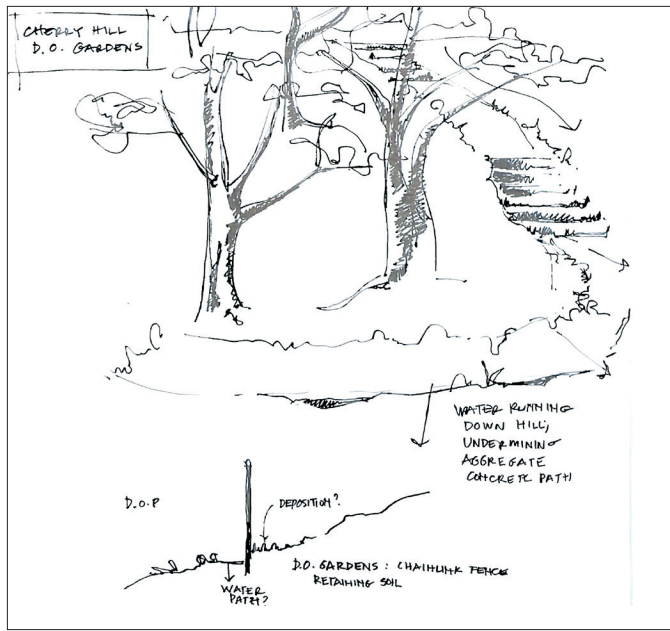 CHERRY HILL
D.O. GARDENS
WATER RUNNING
DOWN HILL,
UNDERMINING
AGGREGATE
CONCRETE PATH
D.O.P
DEPOSITION?
D.O. GARDENS: CHAINLINK FENCE
RETAINING SOIL
WATER
PATH?